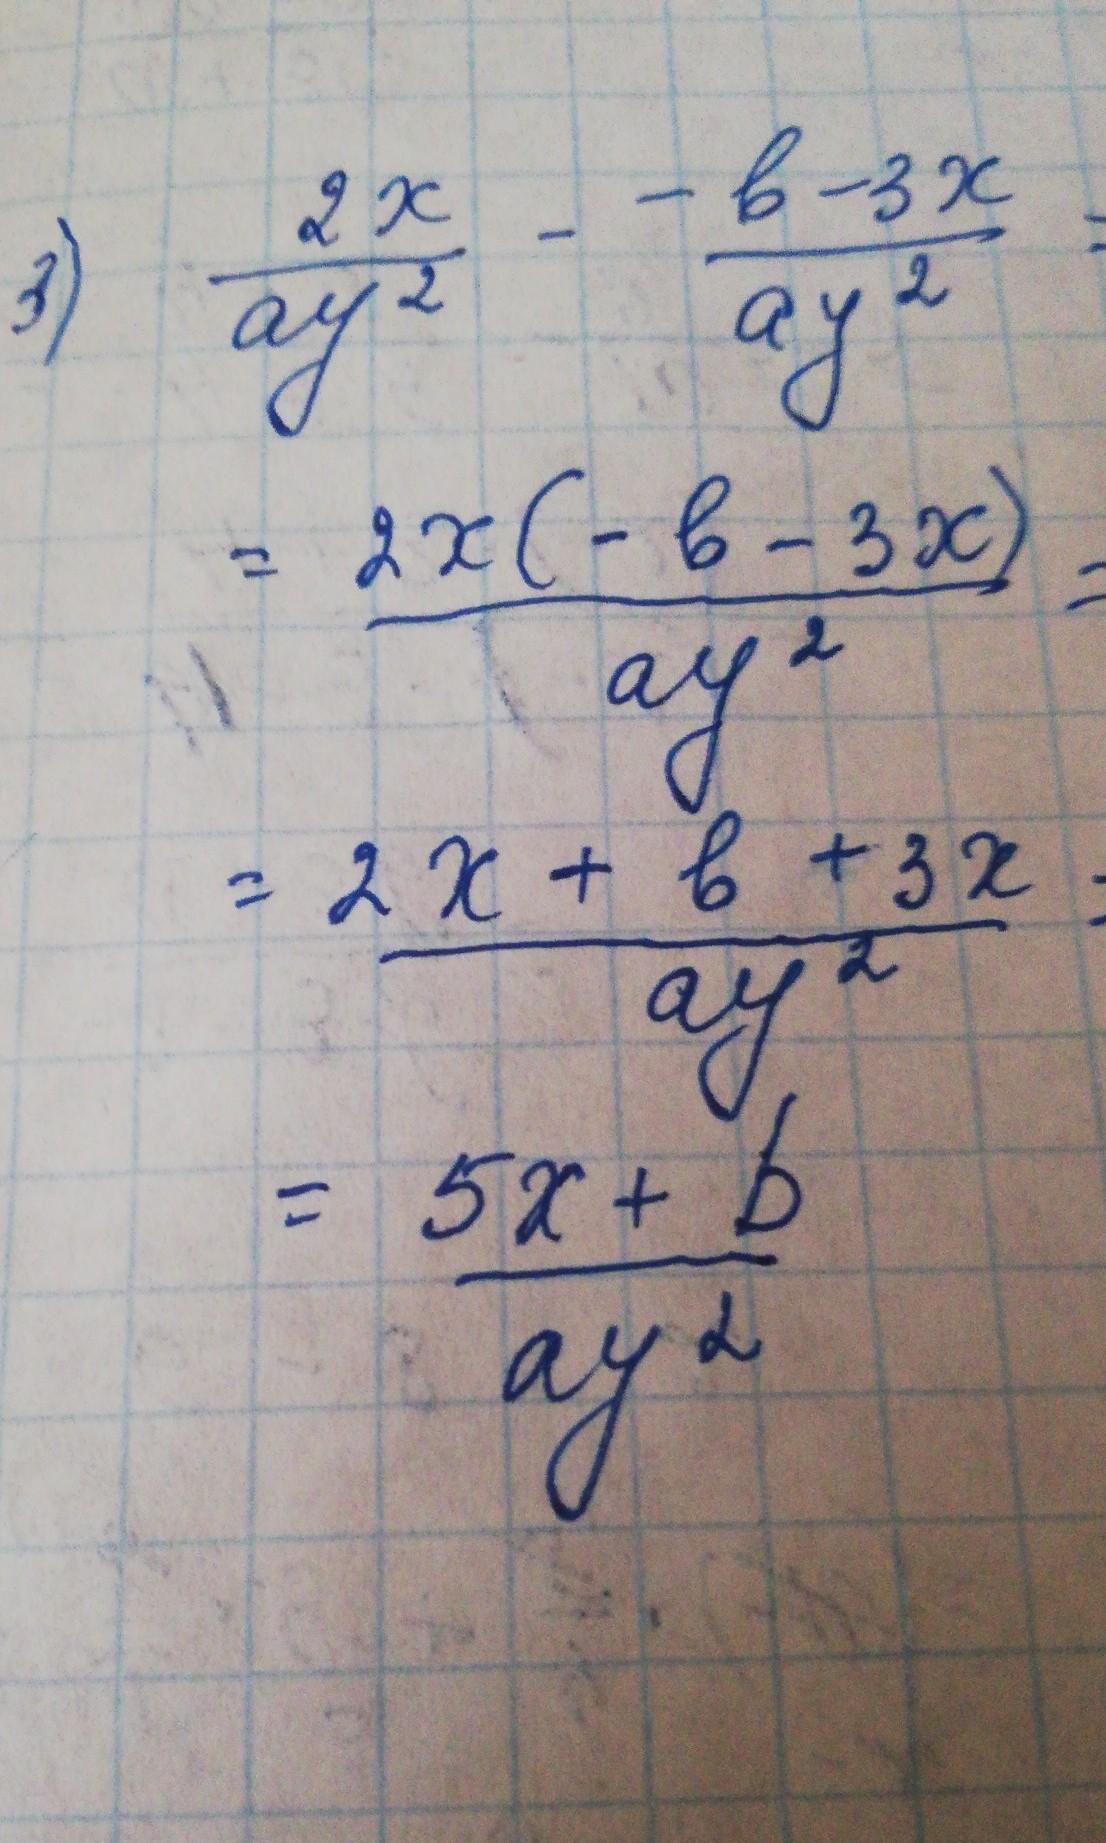 3) 2x/ay² - -b-3x/ay² =
= 2x(-b-3x)/ay² =
= 2x+b+3x/ay² =
= 5x+b/ay²